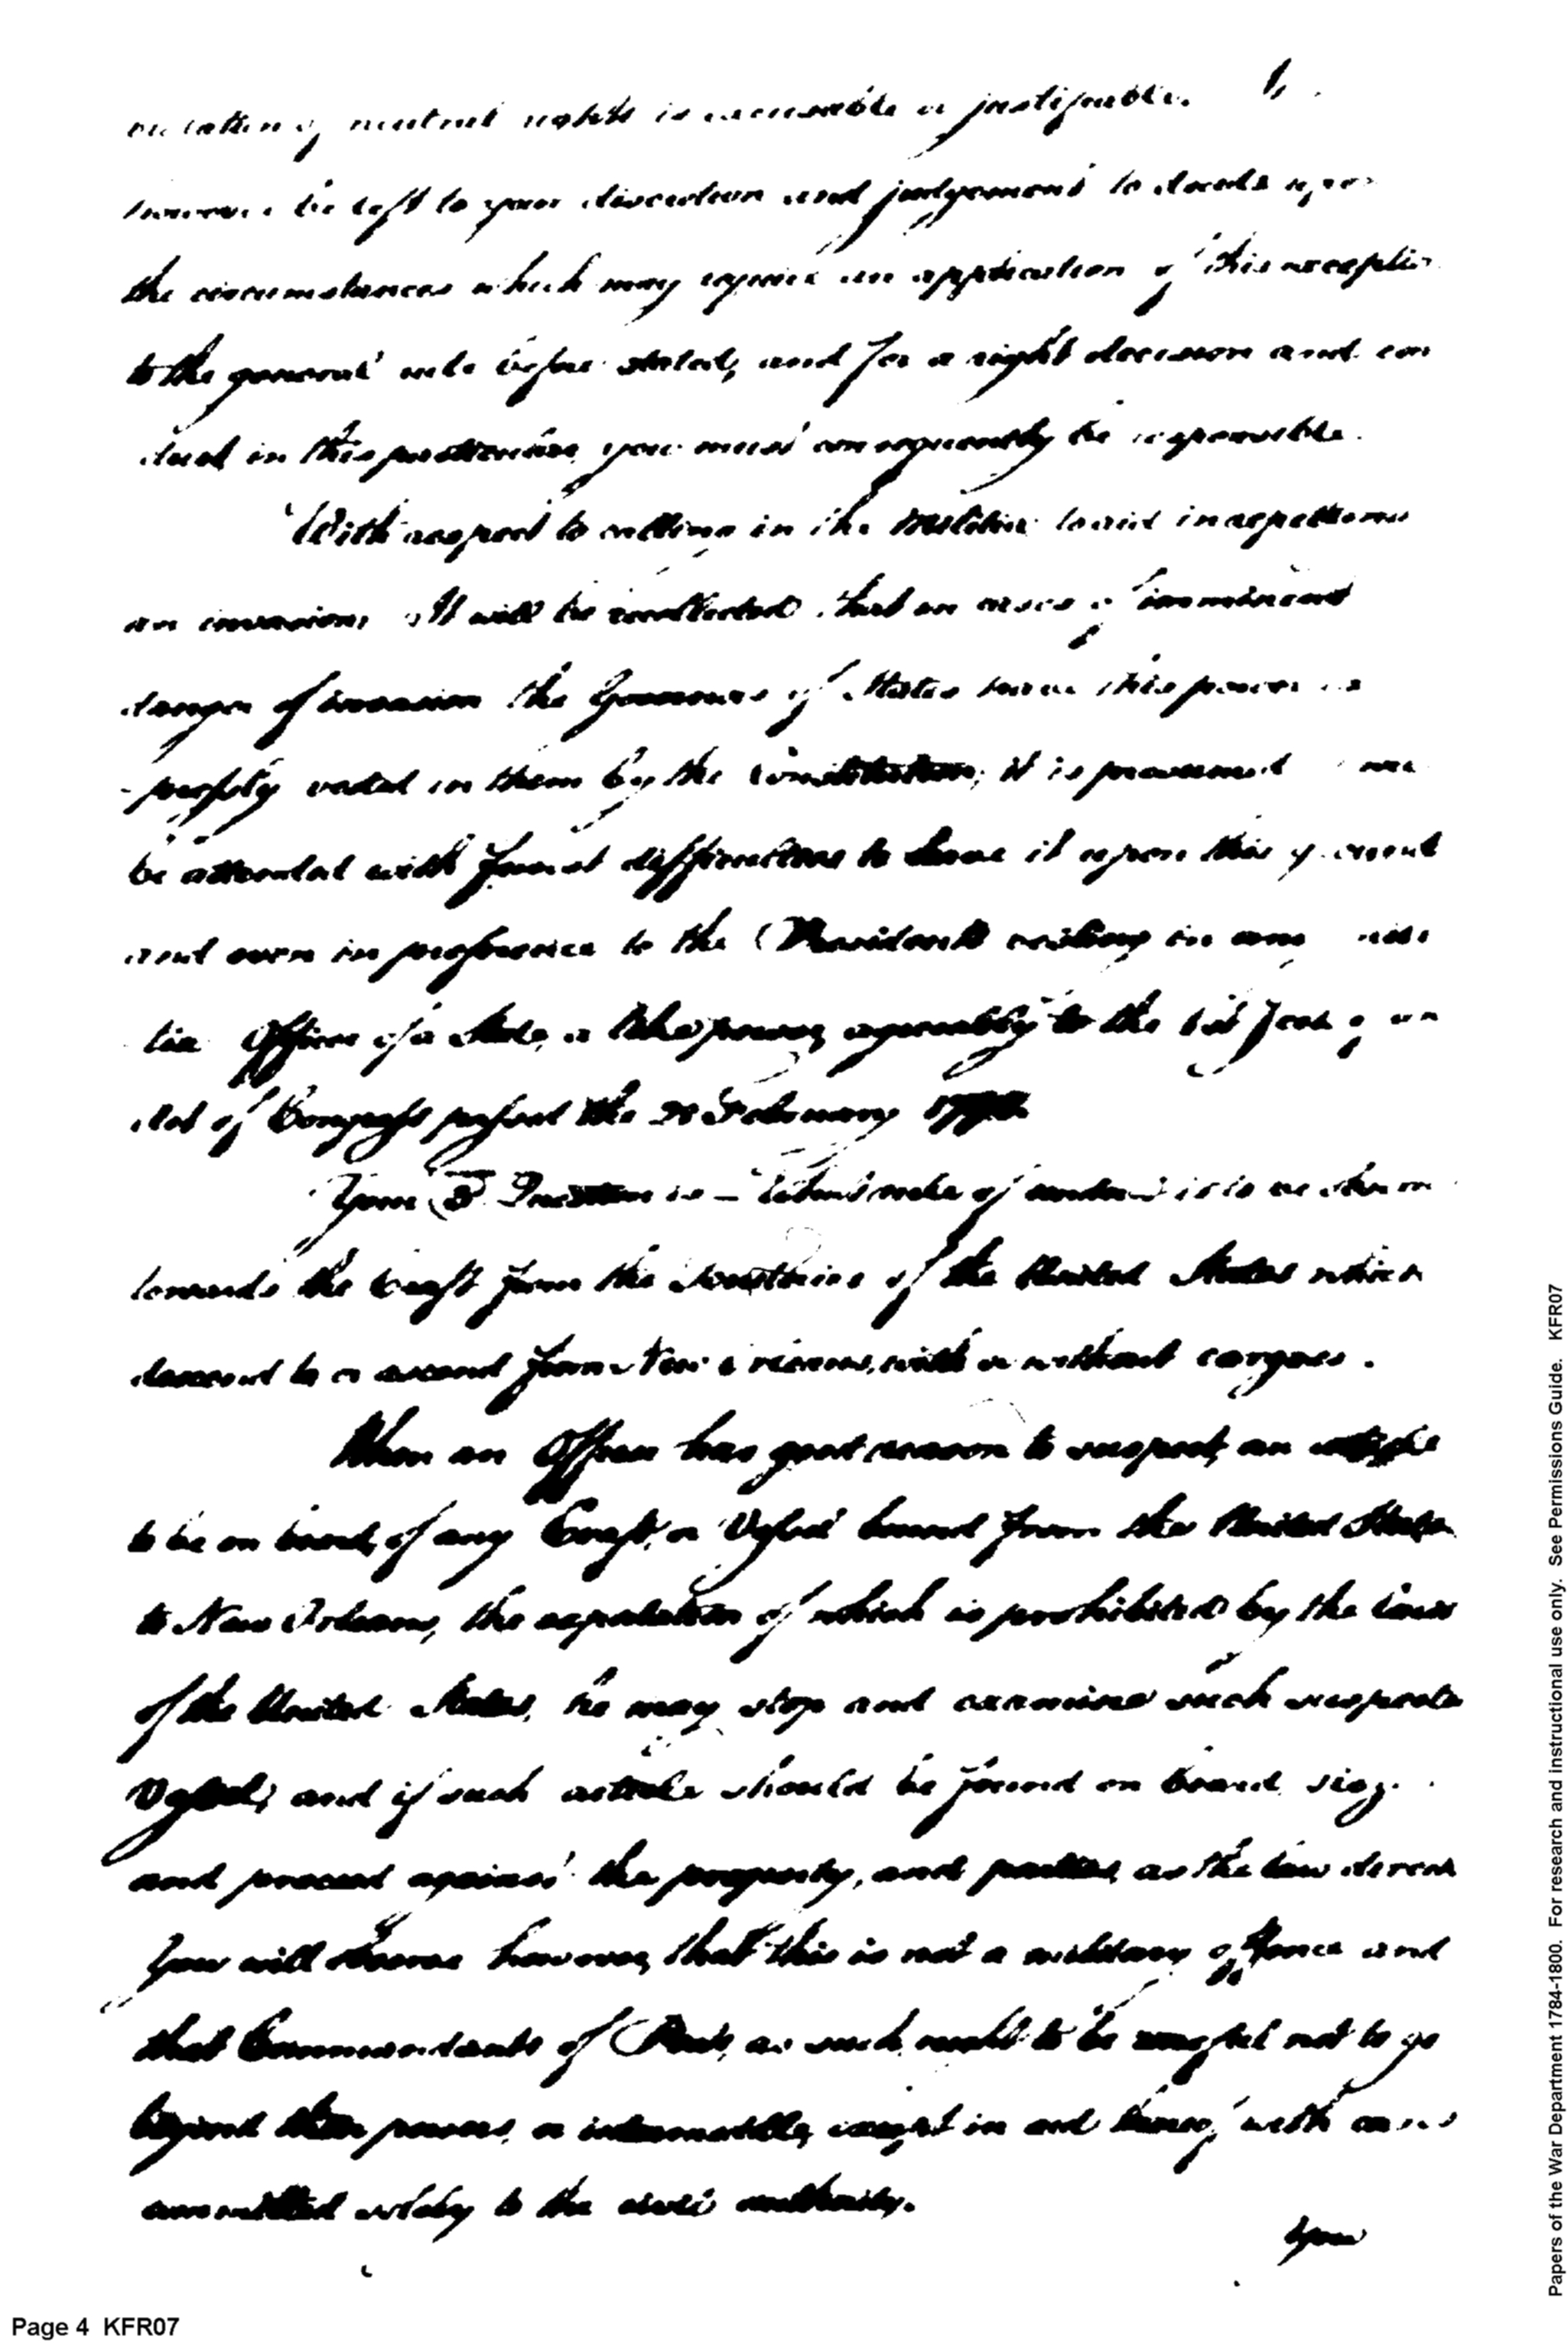 violation of neutral rights is excusable or justifiable. It
however be left to your discretion and judgement to decide upon
the circumstances which may require an application of this exception
to the general rule before stated, and for a right decision and con
duct in this particular, you must consequently be responsible.
With respect to calling in the Militia to aid in repelling
an invasion. It will be recollected that in cases of imminent
danger of invasion the Governours of States have this power
vested in them by the Constitution, it is presumed
be attended with fewest difficulties to leave it upon this ground
and even in preference to the Presidents resting in any mili
tia Officer of a State, a like power, agreeably to the 1st Sec. of an
Act of Congress passed the 28 February
Your 3d Question is – What rule of conduct is to be shewn
towards the Craft from the Territories of the United States which
descend to or ascend from New Orleans, with or without cargoes.
When an Officer has good reason to suspect, an article
to be on board, of any Craft, or Vessel bound from the United States
to New Orleans, the exportation of which is prohibited by the laws
of the United States, he may stop and examine such suspected
Vessel, and if such article should be found on board, seize
and proceed against the property, and parties, as the law directs
You will observe however, that this is not a military offence and
that Commandants of Posts, as such, ought to be careful not to go
beyond their powers, or intermeddle, except in aid with cases
committed solely to the civil authority.
Your
Page 4 KFR07
Papers of the War Department 1784-1800. For research and instructional use only. See Permissions Guide. KFR07